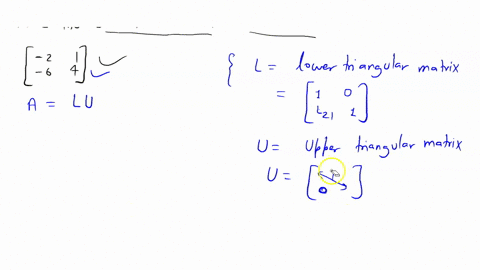 [ -2 1
-6 4 ]
A = LU
{ L = lower triangular matrix
= [ 1 0
L21 1 ]
U = Upper triangular matrix
U = [
0 ]